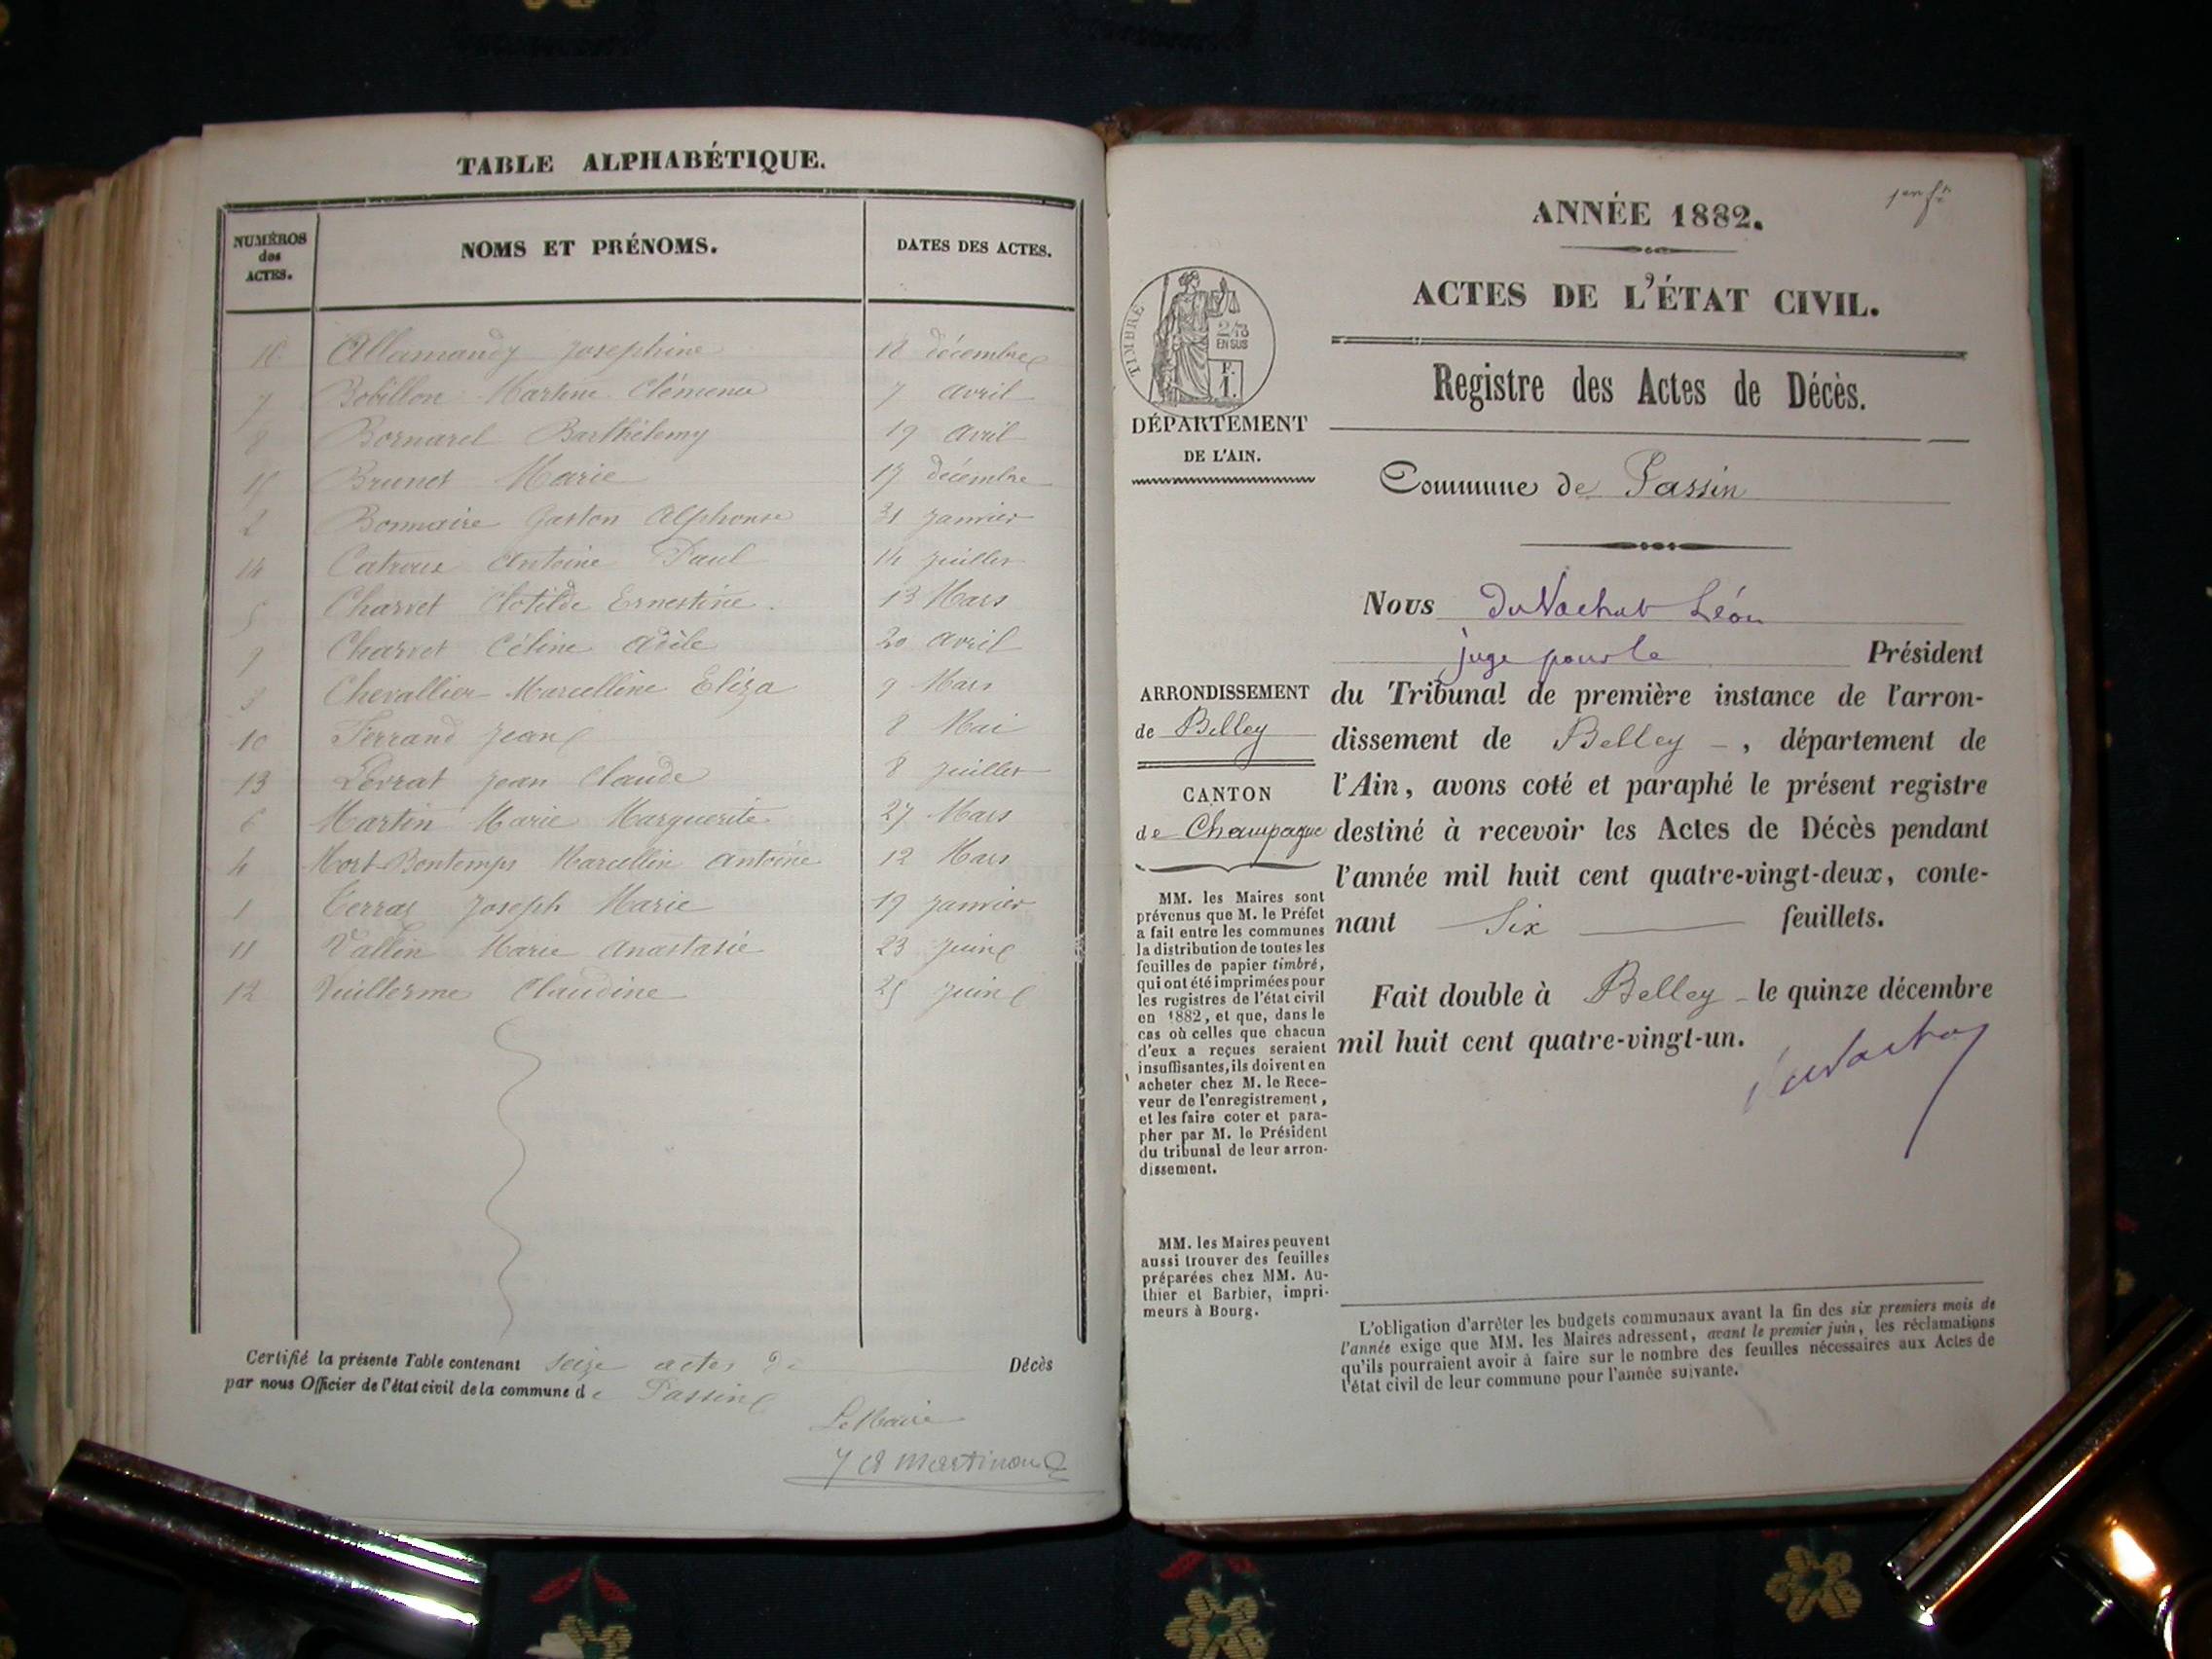 TABLE ALPHABÉTIQUE.
NUMÉROS des ACTES. NOMS ET PRÉNOMS. DATES DES ACTES.
16 Allamandy Josephine 18 décembre
7 Bobillon Martine Clémence 7 avril
8 Bornarel Barthélemy 19 avril
15 Brunet Marie 17 décembre
2 Bonnaire Gaston Alphonse 31 janvier
14 Catroux Antoine Paul 14 juillet
5 Charvet Clotilde Ernestine 13 Mars
9 Charvet Céline Adèle 20 avril
3 Chevallier Marcelline Eliza 9 Mars
10 Ferrand Jean 8 Mai
13 Levrat Jean Claude 8 juillet
6 Martin Marie Marguerite 27 Mars
4 Mort-Bontemps Marcellin Antoine 12 Mars
1 Terraz Joseph Marie 19 janvier
11 Vallin Marie Anastasie 23 juin
12 Vuillerme Claudine 25 juin
Certifié la présente Table contenant seize actes de Décès
par nous Officier de l'état civil de la commune de Passin
Le Maire
Martinand
1er ft
ANNÉE 1882.
ACTES DE L'ÉTAT CIVIL.
Registre des Actes de Décès.
TIMBRE
2/10
EN SUS
F.
1.
DÉPARTEMENT
DE L'AIN.
Commune de Passin
Nous du Vachat Léon
juge pour le Président
du Tribunal de première instance de l'arron-
dissement de Belley, département de
l'Ain, avons coté et paraphé le présent registre
destiné à recevoir les Actes de Décès pendant
l'année mil huit cent quatre-vingt-deux, conte-
nant Six feuillets.
Fait double à Belley le quinze décembre
mil huit cent quatre-vingt-un.
duVachat
ARRONDISSEMENT
de Belley
CANTON
de Champagne
MM. les Maires sont
prévenus que M. le Préfet
a fait entre les communes
la distribution de toutes les
feuilles de papier timbré,
qui ont été imprimées pour
les registres de l'état civil
en 1882, et que, dans le
cas où celles que chacun
d'eux a reçues seraient
insuffisantes, ils doivent en
acheter chez M. le Rece-
veur de l'enregistrement,
et les faire coter et para-
pher par M. le Président
du tribunal de leur arron-
dissement.
MM. les Maires peuvent
aussi trouver des feuilles
préparées chez MM. Au-
thier et Barbier, impri-
meurs à Bourg.
L'obligation d'arrêter les budgets communaux avant la fin des six premiers mois de
l'année exige que MM. les Maires adressent, avant le premier juin, les réclamations
qu'ils pourraient avoir à faire sur le nombre des feuilles nécessaires aux Actes de
l'état civil de leur commune pour l'année suivante.